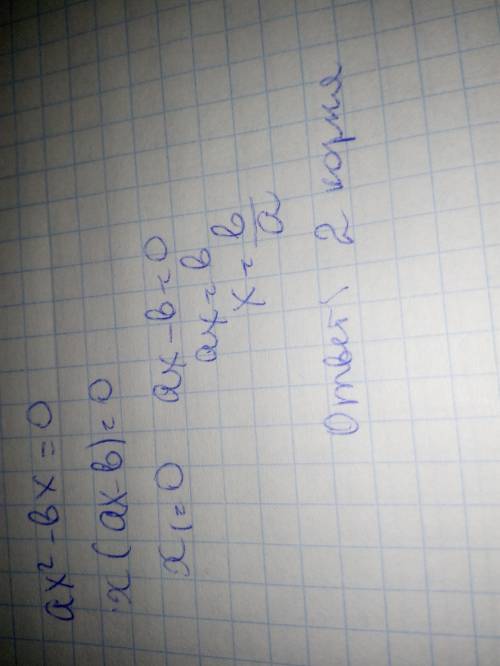 ax² - вx = 0
x(ax-в) = 0
x₁ = 0 ax - в = 0
ax = в
x = в/a
Ответ: 2 корня